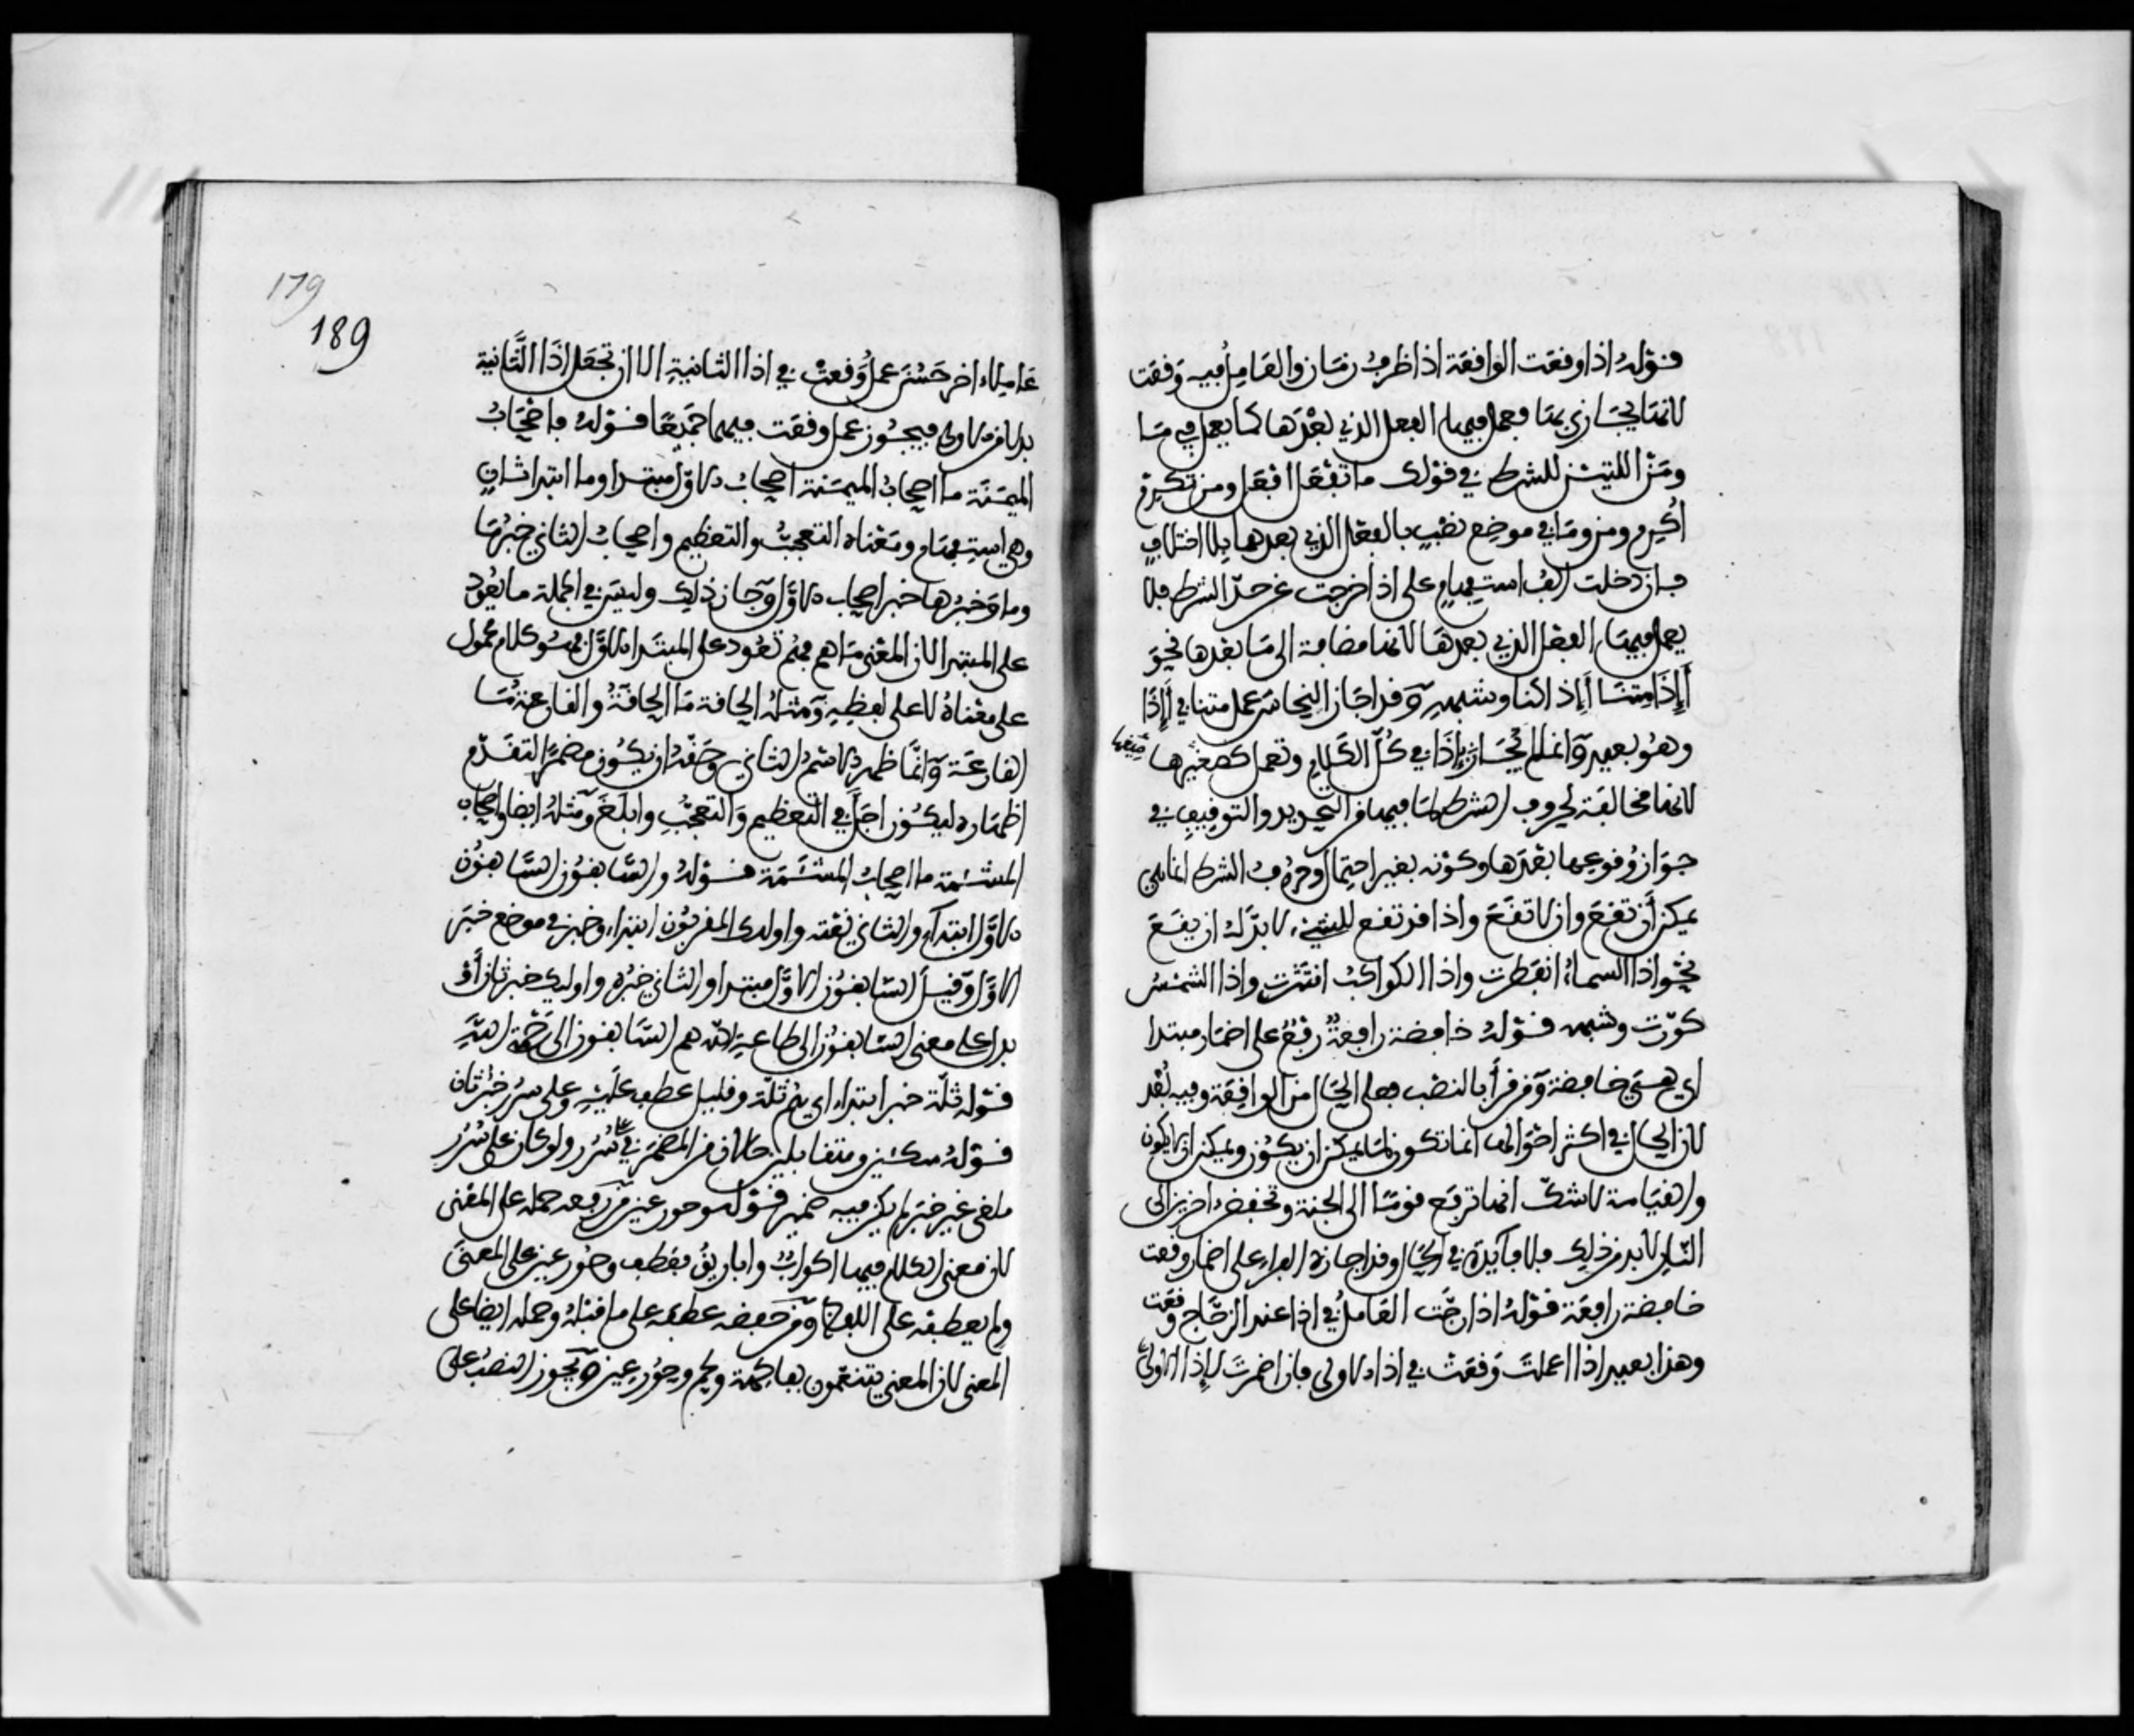 قوله اذا وقعت الواقعة اذا ظرف زمان والعامل فيه وقعت
لانها يجازى بها فعمل فيها الفعل الذي بعدها كما يعمل في ما
ومن اللتين للشرط في قولك ما تفعل افعل ومن تكرم
أكرم ومن وما في موضع نصب بالفعل الذي بعدهما بلا اختلاف
فان دخلت الف استفهام على اذا خرجت عن حد الشرط فلا
يعمل فيها الفعل الذي بعدها لانها مضافة الى ما بعدها نحو
أإذا متنا أإذا كنا وشبهه وقد اجاز النحاس عمل متنا في أإذا
وهو بعيد وانما لم يجاز بإذا في كل الكلام وتعمل كصغيرها
لانها مخالفة لحروف الشرط لما فيها من التحديد والتوقيف في
جواز وقوع ما بعدها وكونه بغير احتمال وحروف الشرط انما هي
يمكن أن تقع وان لا تقع واذا قد تقع للشيء لا بد له ان يقع
نحو اذا السماء انفطرت واذا الكواكب انتثرت واذا الشمس
كورت وشبهه قوله خافضة رافعة رفع على اضمار مبتدا
اي هي خافضة ومن قرأ بالنصب فعلى الحال من الواقعة وفيه بعد
لان الحال في اكثر احوالها انما تكون لما يمكن ان يكون ويمكن ان لا يكون
والقيامة لا شك انها ترفع قوما الى الجنة وتخفض اخرين الى
النار لابد من ذلك فلا فايدة في الحال وقد اجازه الفراء على اضمار وقعت
خافضة رافعة قوله اذا رجت العامل في اذا عند الزجاج وقعت
وهذا بعيد اذا اعملت وقعت في اذا الاولى فان اضمرت لإذا الاولى
179
189
عاملاء اخر حسن عمل وقعت في اذا الثانية الا ان تجعل اذا الثانية
بدلا من الاولى فيجوز عمل وقعت فيهما جميعا قوله فاصحاب
الميمنة ما اصحاب الميمنة اصحاب الاول مبتدا وما ابتدا ثان
وهي استفهام ومعناه التعجب والتعظيم واصحاب الثاني خبرها
وما وخبرها خبر اصحاب الاول وجاز ذلك وليس في الجملة ما يعود
على المبتدا لان المعنى ما هم فهم تعود على المبتدا الاول فهو كلام محمول
على معناه لا على لفظه ومثله الحاقة ما الحاقة والقارعة ما
القارعة وانما ظهر الاسم الثاني وحقه ان يكون مضمرا لتقدم
اظهاره ليكون اجل في التعظيم والتعجب وابلغ ومثله ايضا واصحاب
المشئمة ما اصحاب المشئمة قوله والسابقون السابقون
الاول ابتداء والثاني نعته واولئك المقربون ابتداء وخبر في موضع خبر
الاول وقيل السابقون الاول مبتدا والثاني خبره واوليك خبر ثان أو
بدل على معنى السابقون الى طاعة الله هم السابقون الى رحمة الله
قوله ثلة خبر ابتداء اي هم ثلة وقليل عطف عليه وعلى سرر خبر ثان
قوله متكئين ومتقابلين حالان من المضمر في على سرر ولو كان على سرر
ملغى غير خبر لم يكن فيه ضمير قوله وحور عين من رفعه حمله على المعنى
لان معنى الكلام فيها اكواب واباريق فعطف وحور عين على المعنى
ولم يعطفه على اللفظ ومن خفضه عطفه على ما قبله وحمله ايضا على
المعنى لان المعنى يتنعمون بفاكهة ولحم وحور عين ويجوز النصب على